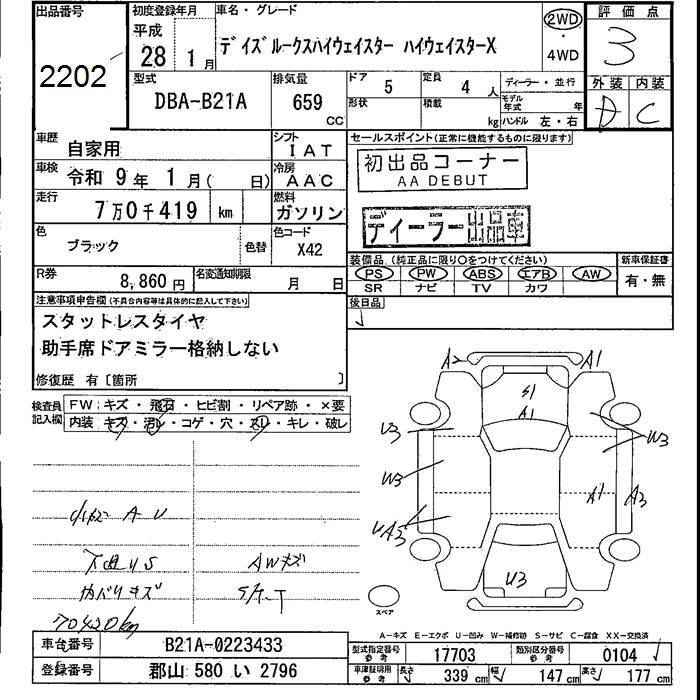 出品番号
2202
初度登録年月
平成
28年 1月
車名・グレード
デイズルークスハイウェイスター ハイウェイスターX
2WD
・
4WD
評価点
3
外装 内装
D C
型式
DBA-B21A
排気量
659
CC
ドア
5
定員
4 人
ディーラー・並行
形状
積載
kg
モデル年式
年
ハンドル 左・右
車歴
自家用
シフト
IAT
車検
令和 9年 1月( 日)
冷房
AAC
走行
7万0千419 km
燃料
ガソリン
色
ブラック
色替
色コード
X42
R券
8,860 円
名変通知期限
月 日
セールスポイント(正常に機能するものに限ります)
初出品コーナー
AA DEBUT
ディーラー出品車
装備品(純正品に限り○をつけてください)
PS PW ABS エアB AW
SR ナビ TV カワ
新車保証書
有・無
後日品
注意事項申告欄(不具合内容等は具体的に記入して下さい)
スタットレスタイヤ
助手席ドアミラー格納しない
修復歴 有〔箇所 〕
検査員記入欄
FW・キズ・飛石・ヒビ割・リペア跡・×要
内装・キズ・汚レ・コゲ・穴・スレ・キレ・破レ
A U
AWキズ
カバリキズ
S/T-T
70420km
A2 A1
S1
A1
U3
W3
W3
A1 A3
UA3
U3
スペア
A-キズ E-エクボ U-凹み W-補修跡 S-サビ C-腐食 XX-交換済
車台番号
B21A-0223433
登録番号
郡山 580 い 2796
型式指定番号
参考
17703
類別区分番号
参考
0104
車庫証明用
参考
長さ 339 cm 幅 147 cm 高さ 177 cm